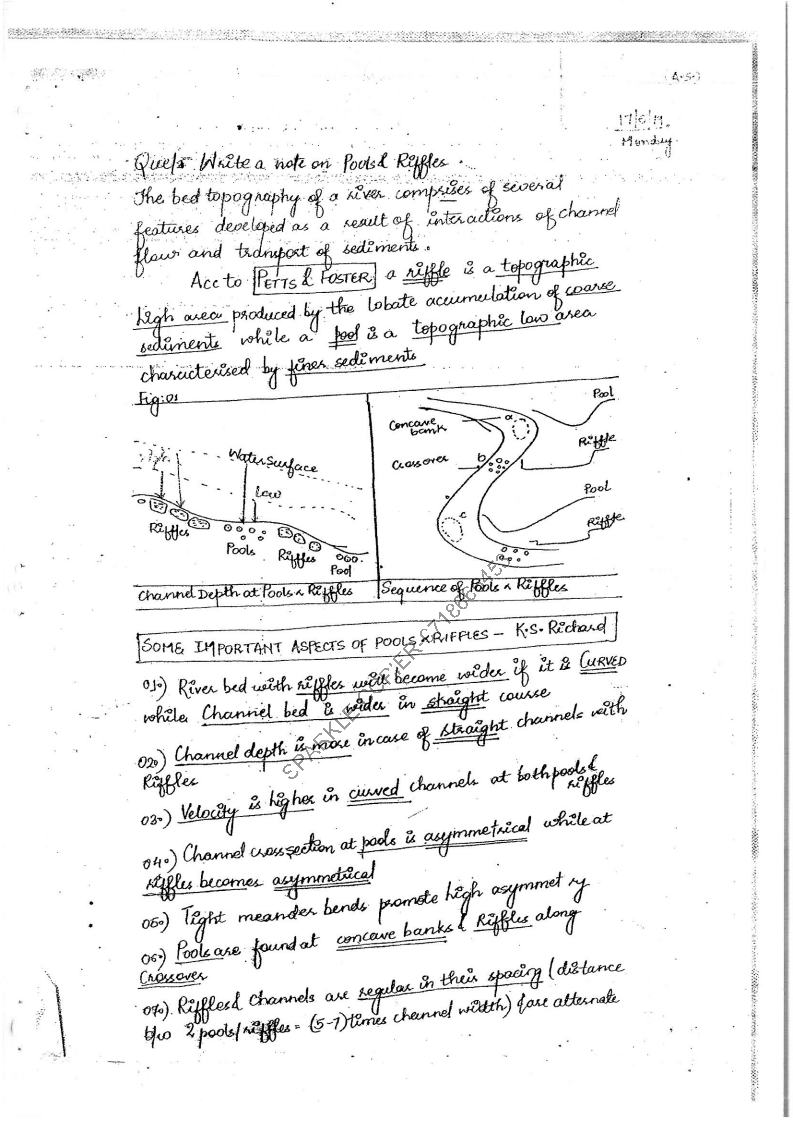 (A.S.)
17/6/19.
Monday.
Que/s Write a note on Pools & Riffles.
The bed topography of a river comprises of several
features developed as a result of interactions of channel
flow and transport of sediments.
Acc to PETTS & FOSTER a riffle is a topographic
high area produced by the lobate accumulation of coarse
sediments while a pool is a topographic low area
characterised by finer sediments
Fig:01
Water Surface
Low
Riffles
Pools
Riffles
Pool
Channel Depth at Pools & Riffles
Concave
bank
a
Crossover
b
c
Pool
Riffle
Pool
Riffle
Sequence of Pools & Riffles
SOME IMPORTANT ASPECTS OF POOLS & RIFFLES - K.S. Richard
01.) River bed with riffles will become wider if it is CURVED
while Channel bed is wider in straight course
02.) Channel depth is more in case of straight channels with
Riffles
03.) Velocity is higher in curved channels at both pools &
riffles
04.) Channel cross section at pools is asymmetrical while at
riffles becomes asymmetrical
05.) Tight meander bends promote high asymmetry
06.) Pools are found at concave banks & Riffles along
Crossover
07.) Riffles & Channels are regular in their spacing (distance
b/w 2 pools/riffles = (5-7) times channel width) & are alternate